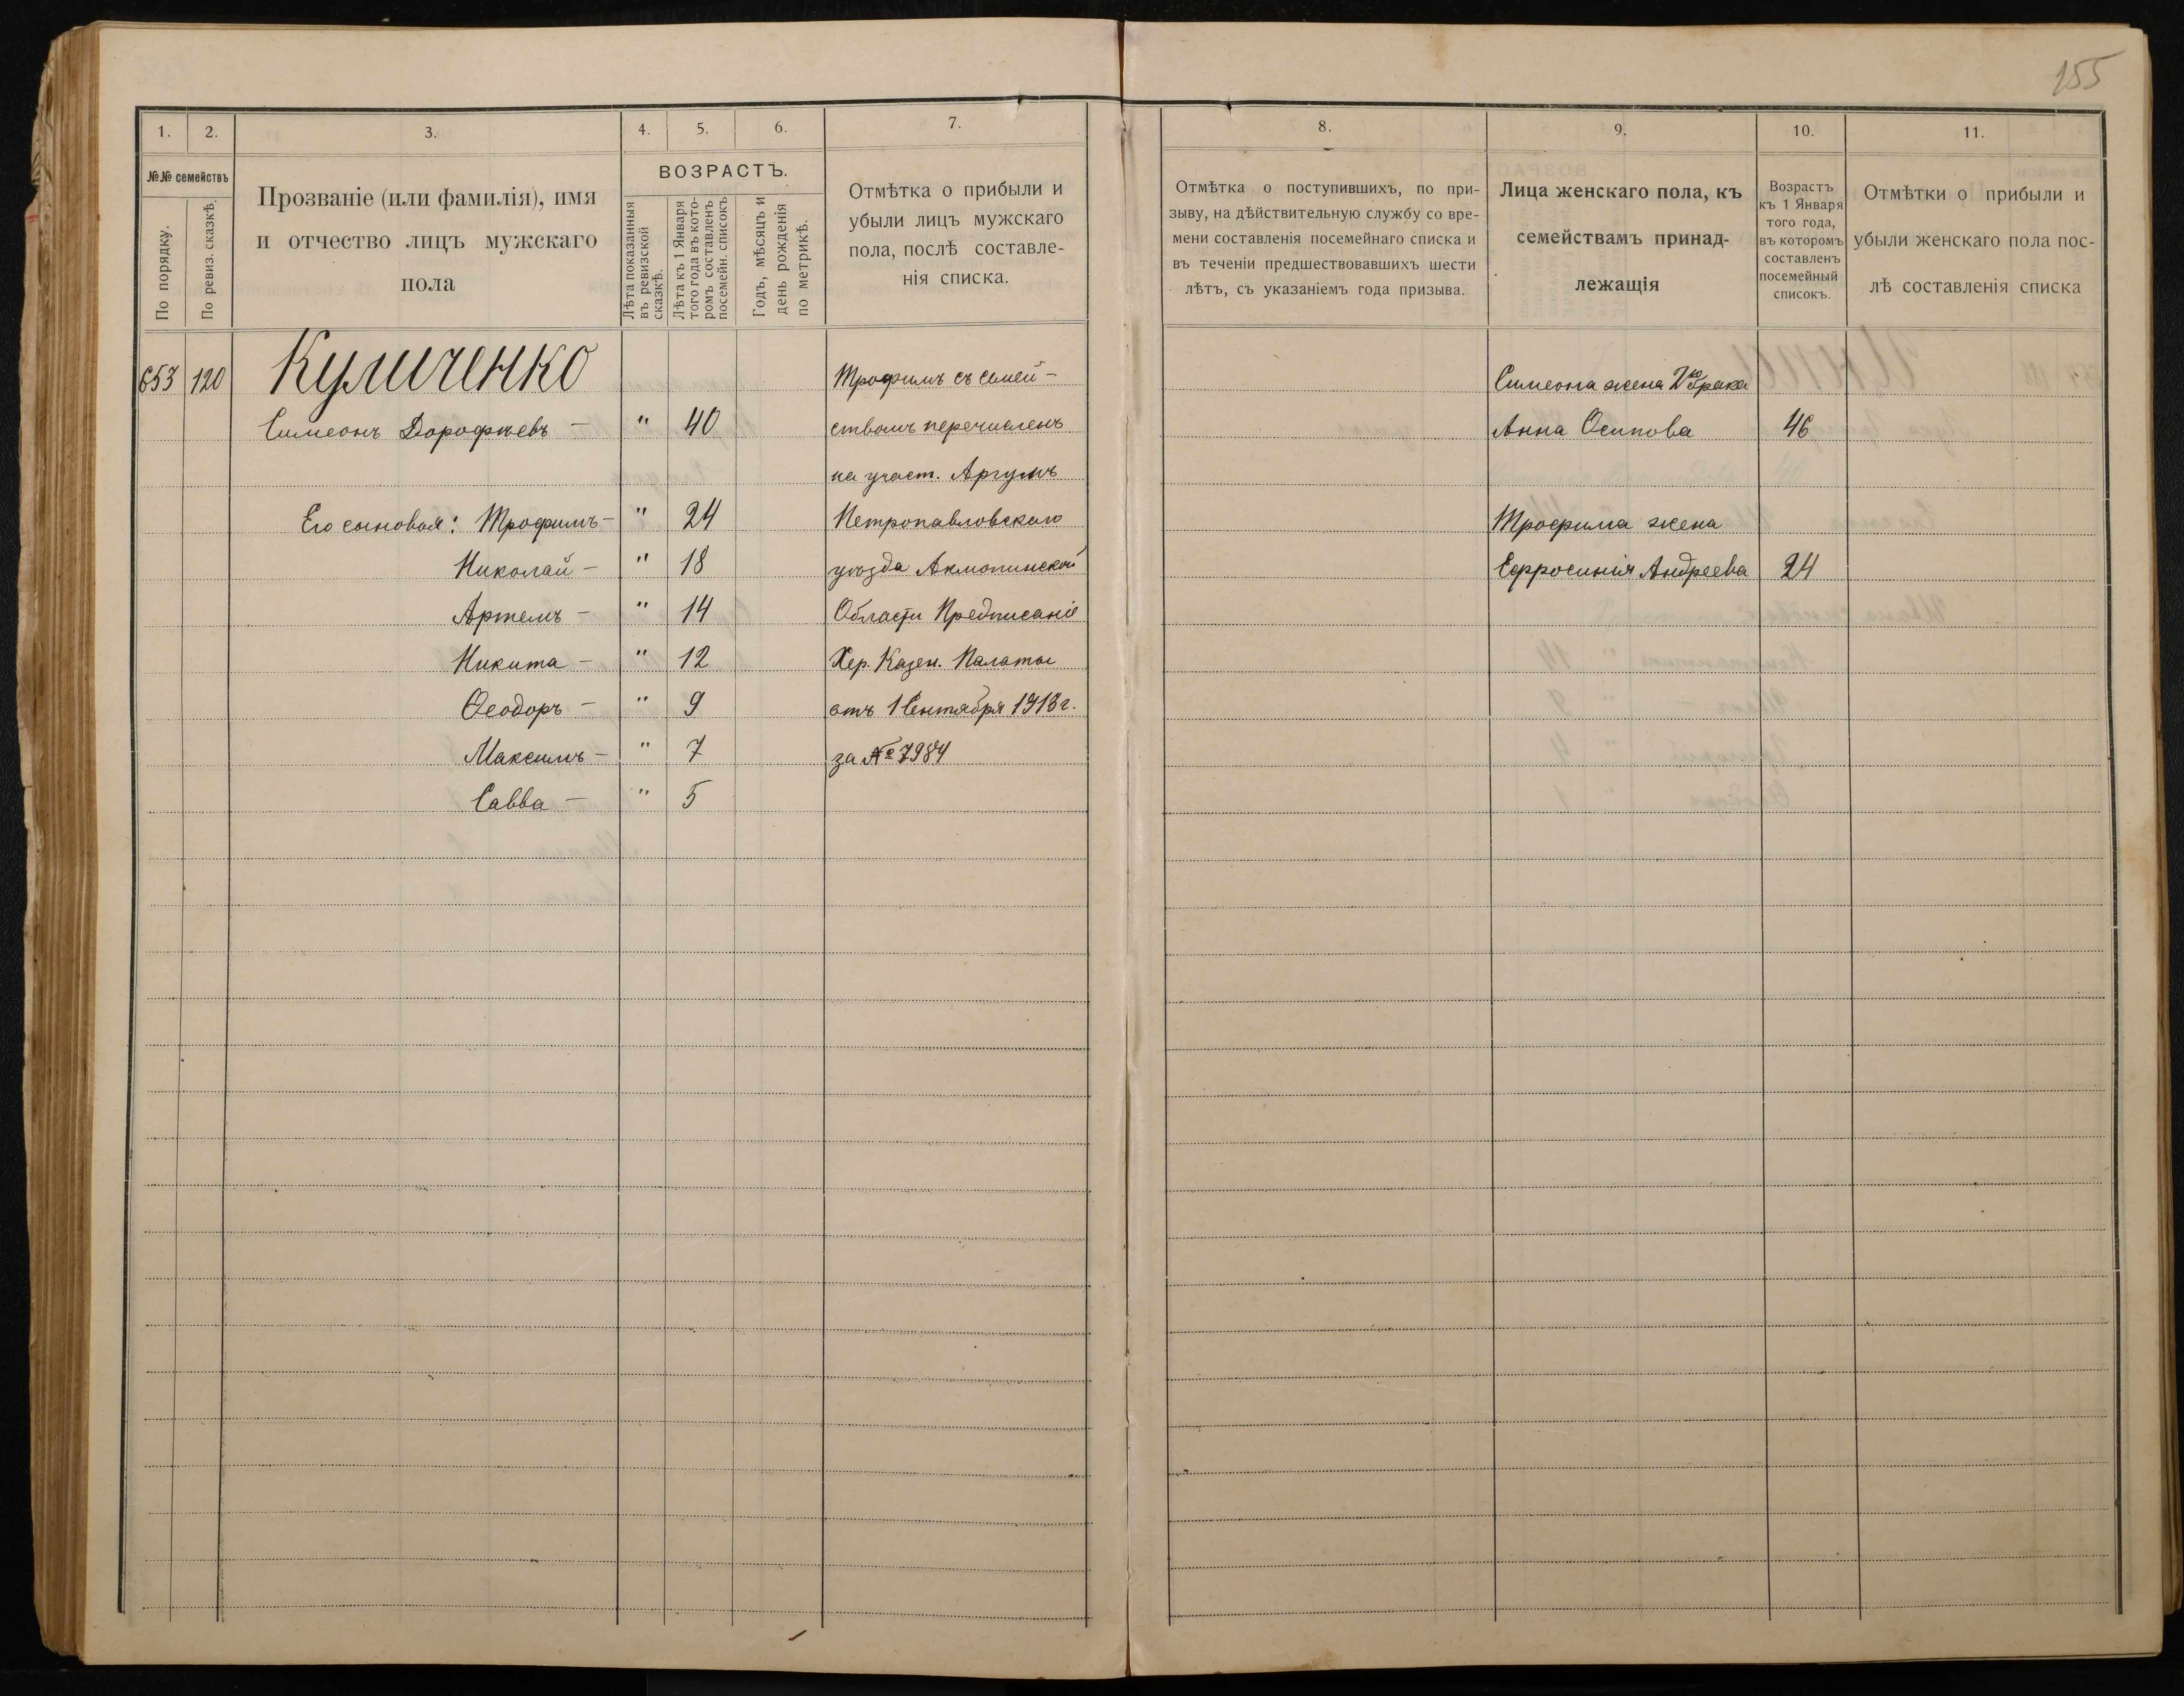 155
1. 2. 3. 4. 5. 6. 7.
8. 9. 10. 11.
№№ семействъ
По порядку.
По ревиз. сказкѣ.
Прозваніе (или фамилія), имя
и отчество лицъ мужскаго
пола
ВОЗРАСТЪ.
Лѣта показанныя
въ ревизской
сказкѣ.
Лѣта къ 1 Января
того года въ кото-
ромъ составленъ
посемейн. списокъ
Годъ, мѣсяцъ и
день рожденія
по метрикѣ.
Отмѣтка о прибыли и
убыли лицъ мужскаго
пола, послѣ составле-
нія списка.
Отмѣтка о поступившихъ, по при-
зыву, на дѣйствительную службу со вре-
мени составленія посемейнаго списка и
въ теченіи предшествовавшихъ шести
лѣтъ, съ указаніемъ года призыва.
Лица женскаго пола, къ
семействамъ принад-
лежащія
Возрастъ
къ 1 Января
того года,
въ которомъ
составленъ
посемейный
списокъ.
Отмѣтки о прибыли и
убыли женскаго пола пос-
лѣ составленія списка
653 120 Куличенко
Симеонъ Дорофѣевъ — " 40
Его сыновья: Трофимъ — " 24
Николай — " 18
Артемъ — " 14
Никита — " 12
Ѳеодоръ — " 9
Максимъ — " 7
Савва — " 5
Трофимъ съ семей-
ствомъ перечисленъ
на участ. Аргумъ
Петропавловскаго
уѣзда Акмолинской
Области Предписаніе
Хер. Казен. Палаты
отъ 1 Сентября 1913 г.
за № 7984
Симеона жена 2го брака
Анна Осипова 46
Трофима жена
Ефросинія Андреева 24